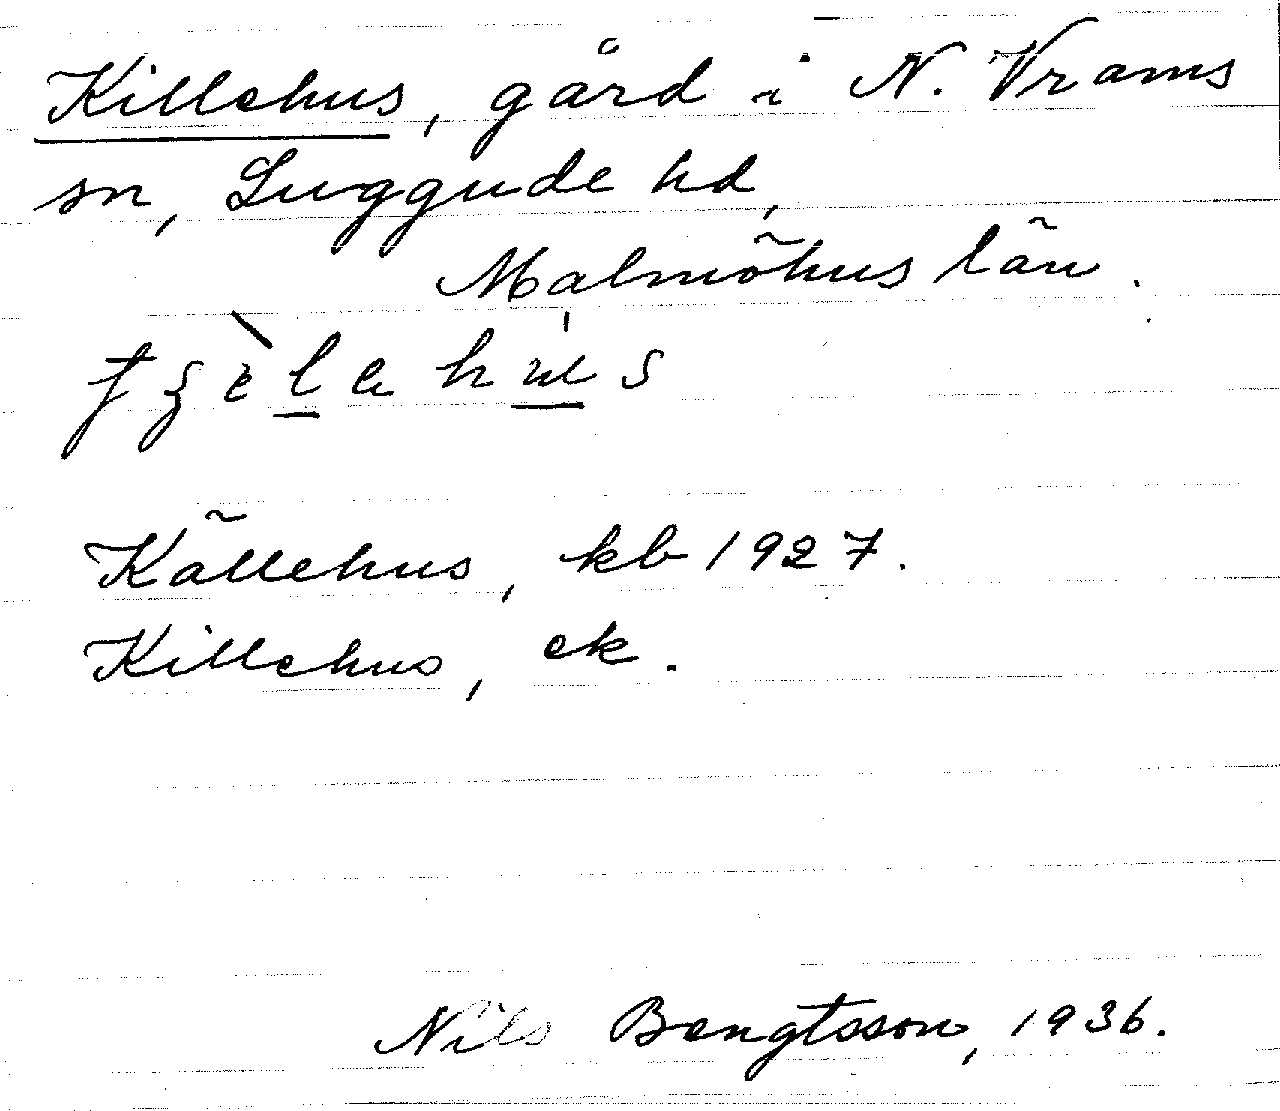 Killehus, gård i N. Vrams
sn, Luggude hd,
Malmöhus län.
Källehus, kb 1927.
Killehus, ek.
Nils Bengtsson, 1936.